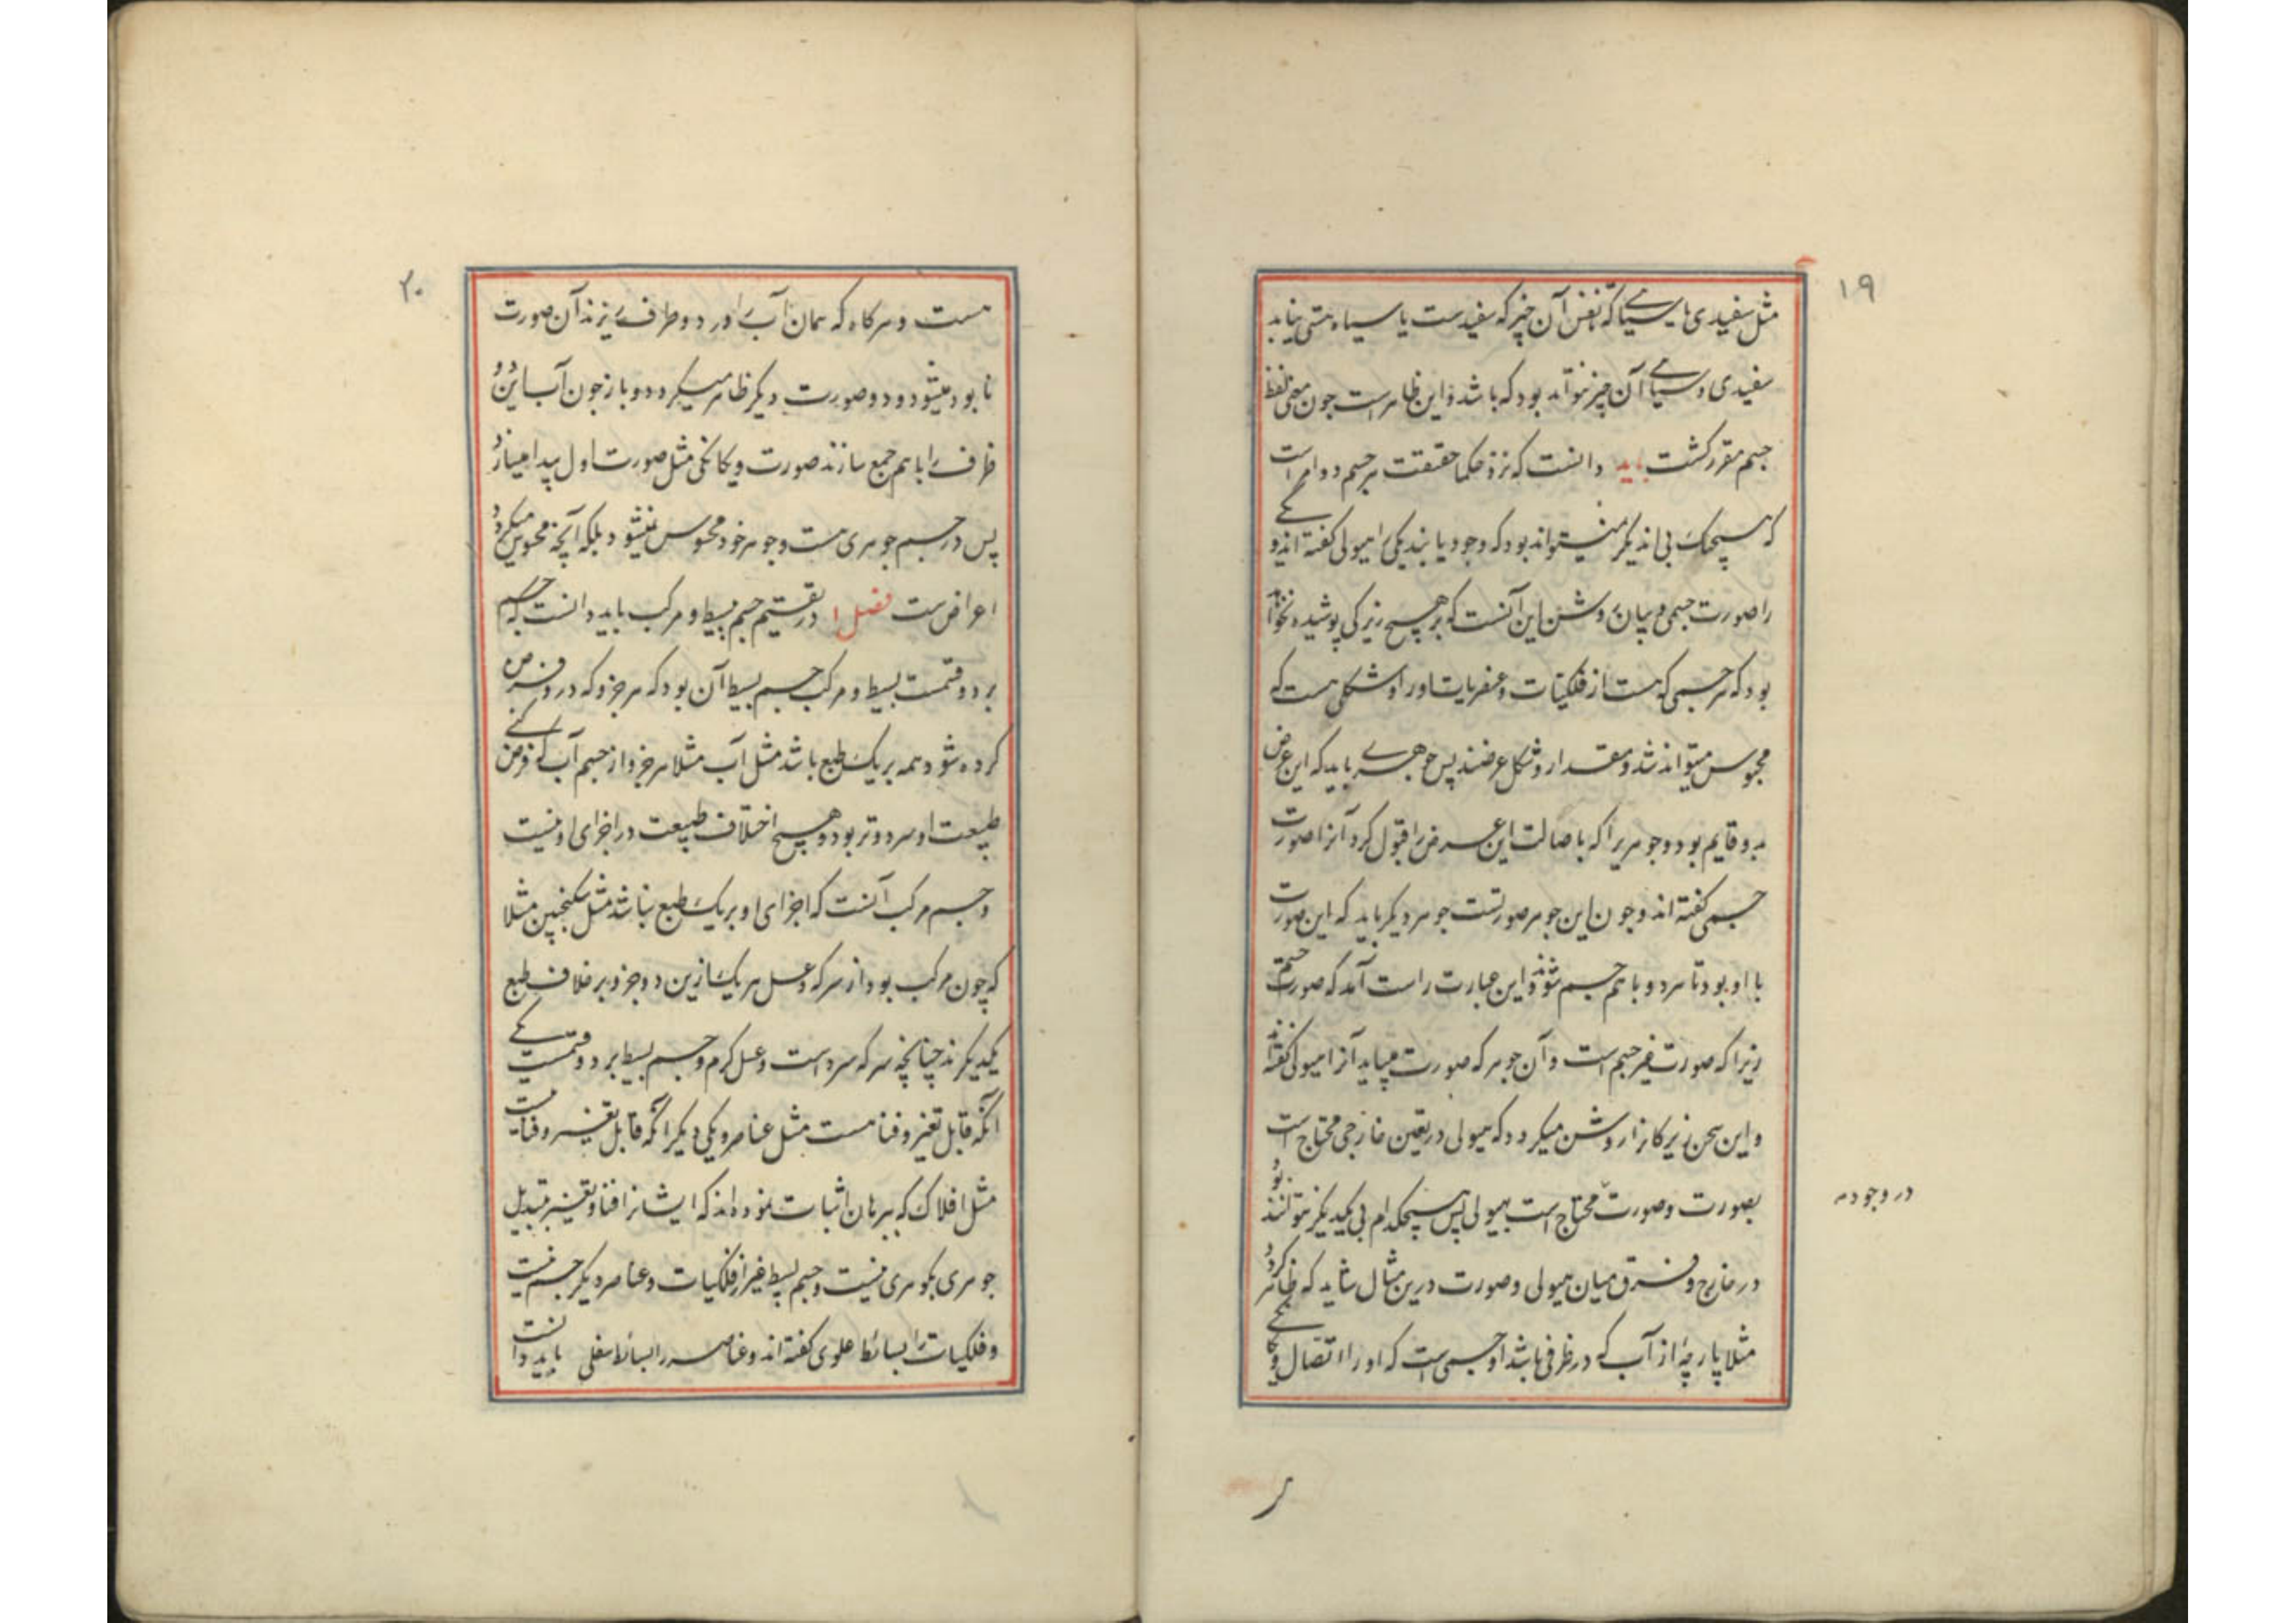 ۱۹
مثل سفیدی یا سیاهی که نفس آن چیز که سفیدست یا سیاه هستی نیابد
سفیدی و سیاهی آن چیز نتواند بود که باشد و این ظاهر است چون معنی لفظ
جسم مقرر گشت باید دانست که نزد حکما حقیقت هر جسم دو امر است
که هیچیک بی اندیگر نمیتواند بود که وجود یابند یکی را هیولی گفته اند و یکی
را صورت جسمی و بیان روشن این آنست که بر هیچ زیرکی پوشیده نخواهد
بود که هر جسمی که هست از فلکیات و عنصریات او را شکلی هست که
محسوس میتواند شد و مقدار و شکل عرضند پس جوهری باید که این عرض
بدو قایم بود و جوهریرا که باصالت این عرض را قبول کرد آنرا صورت
جسمی گفته اند و چون این جوهر صورتست جوهر دیگر باید که این صورت
با او بود تا هر دو با هم جسم شوند و این عبارت راست آمد که صورت جسم
زیرا که صورت غیر جسم است و آن جوهر که صورت میباید آنرا هیولی گفته اند
و این سخن زیرکانرا روشن میگردد که هیولی در تعین خارجی محتاج است
بصورت و صورت محتاج است بهیولی پس هیچکدام بی یکدیگر نتوانند بود
در وجود
در خارج و فرق میان هیولی و صورت درین مثال شاید که ظاهر گردد
مثلا پارچهٔ از آب که در ظرفی باشد او جسمی است که او را اتصال و یکانگی
۲۰
هست و هرکاه که همان آب را در دو ظرف ریزند آن صورت
نابود میشود و دو صورت دیگر ظاهر میگردد و باز چون آب این دو
ظرف را با هم جمع سازند صورت و یکانگی مثل صورت اول پیدا میسازد
پس در جسم جوهری هست و جوهر خود محسوس نمیشود بلکه آنچه محسوس میگردد
اعراض ست فصل ۱ در تقسیم جسم ببسیط و مرکب باید دانست که جسم
بر دو قسمت بسیط و مرکب جسم بسیط آن بود که هر جزو که درو فرض
کرده شود همه بر یک طبع باشد مثل آب مثلا هر جزو از جسم آب که فرض کنی
طبیعت او سرد و تر بود و هیچ اختلاف طبیعت در اجزای او نیست
و جسم مرکب آنست که اجزای او بر یک طبع نباشد مثل سکنجبین مثلا
که چون مرکب بود از سرکه و عسل هر یک ازین دو جزو بر خلاف طبع
یکدیگرند چنانچه سرکه سرد است و عسل گرم و جسم بسیط بر دو قسمست یکی
آنکه قابل تغیر و فنا هست مثل عناصر و یکی دیگر آنکه قابل تغیر و فنا نیست
مثل افلاک که ببرهان اثبات نموده اند که ایشانرا فنا و تغیر بتبدیل
جوهری بجوهری نیست و جسم بسیط غیر از فلکیات و عناصر دیگر جسم نیست
و فلکیات را بسائط علوی گفته اند و عناصر را بسائط سفلی باید دانست